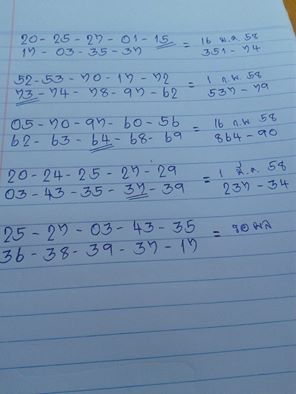 20 - 25 - 27 - 01 - 15 = 16 ม.ค. 58
17 - 03 - 35 - 37 351 - 74
52 - 53 - 70 - 17 - 72 = 1 ก.พ. 58
73 - 74 - 78 - 97 - 62 537 - 79
05 - 70 - 97 - 60 - 56 = 16 ก.พ. 58
62 - 63 - 64 - 68 - 69 864 - 90
20 - 24 - 25 - 27 - 29 = 1 มี.ค. 58
03 - 43 - 35 - 37 - 39 237 - 34
25 - 27 - 03 - 43 - 35 = รอผล
36 - 38 - 39 - 37 - 17